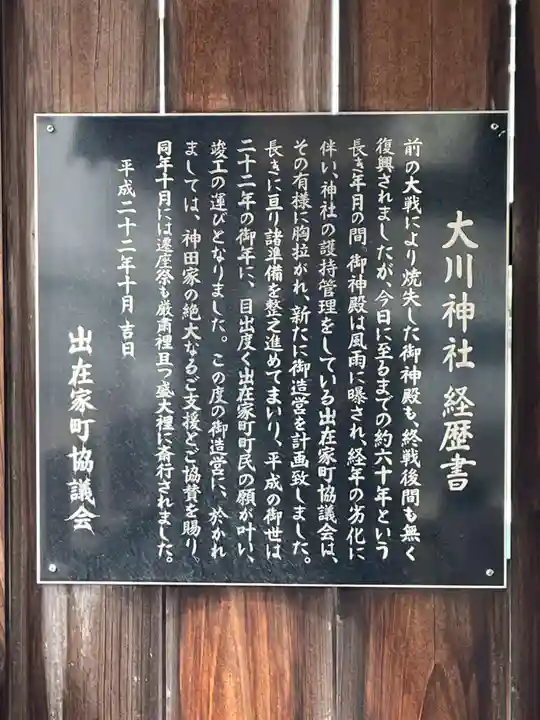 大川神社 経歴書
前の大戦により焼失した御神殿も、終戦後間も無く
復興されましたが、今日に至るまでの約六十年という
長き年月の間、御神殿は風雨に曝され、経年の劣化に
伴い、神社の護持管理をしている出在家町協議会は、
その有様に胸拉がれ、新たに御造営を計画致しました。
長きに亘り諸準備を整え進めてまいり、平成の御世は
二十二年の御年に、目出度く出在家町町民の願が叶い、
竣工の運びとなりました。この度の御造営に、於かれ
ましては、神田家の絶大なるご支援とご協賛を賜り。
同年十月には遷座祭も厳粛裡且つ盛大裡に斎行されました。
平成二十二年十月 吉日
出在家町協議会